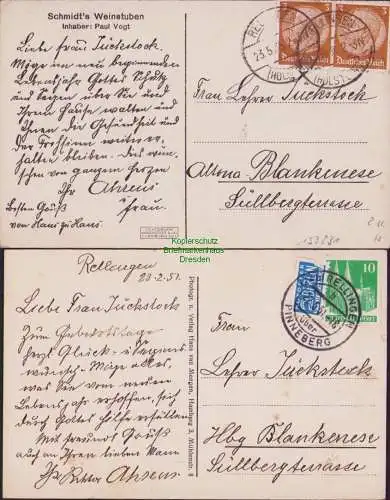 Schmidt's Weinstuben
Inhaber: Paul Vogt
Liebe Frau Tückstock.
Möge im neu beginnenden
Lebensjahr Gottes Schutz
und Segen über Sie und
Ihrem Hause walten und
Ihnen die Gesundheit und
der Frohsinn weiter er-
halten bleiben. Dies wün-
schen von ganzem Herzen
Ihr Ahrens
Besten Gruß u. Frau.
von Haus zu Haus
REL
23.5.
(HOLST)
Deutsches Reich
Frau Lehrer Tückstock
Altona Blankenese
Süllbergterrasse
Kopierschutz
Briefmarkenhaus
Dresden
Rellingen
20.2.51.
Liebe Frau Tückstock
Zum Geburtstage
herzl. Glück- u. Segens-
wünsch. Möge alles,
was Sie vom neuen
Lebensjahr erhoffen, sich
durch Gottes Hilfe erfüllen
Mit freundl. Gruß
auch an Ihren lieben Mann
Ihr Rektor Ahrens
Photogr. u. Verlag Hans von Morgen, Hamburg 3, Mühlenstr. 8
RELLINGEN
über
PINNEBERG
10
Frau
Lehrer Tückstock
Hbg Blankenese
Süllbergterrasse